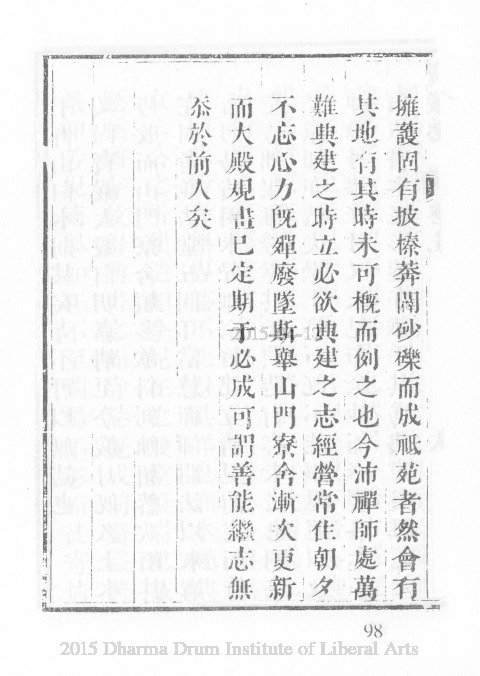 擁護固有披榛莽闢砂礫而成祇苑者然會有
其地有其時未可概而例之也今沛禪師處萬
難興建之時立必欲興建之志經營常住朝夕
不忘心力旣殫廢墜斯舉山門寮舍漸次更新
而大殿規畫已定期于必成可謂善能繼志無
忝於前人矣
98
2015 Dharma Drum Institute of Liberal Arts